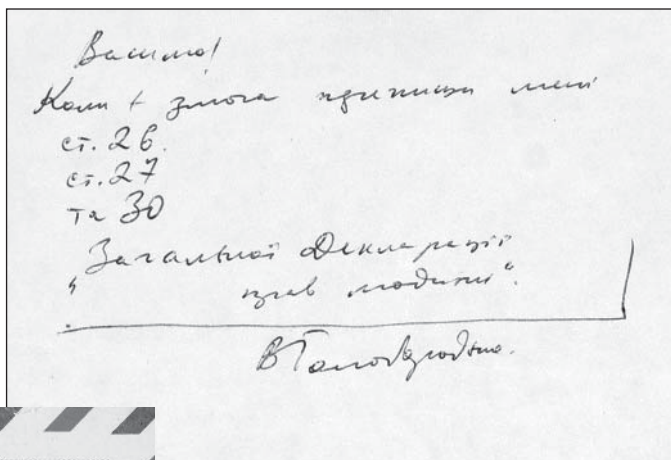 Василю!
Коли є змога припиши мені
ст. 26.
ст. 27
та 30
„Загальної Декларації
прав людини“.
В Голобородько.